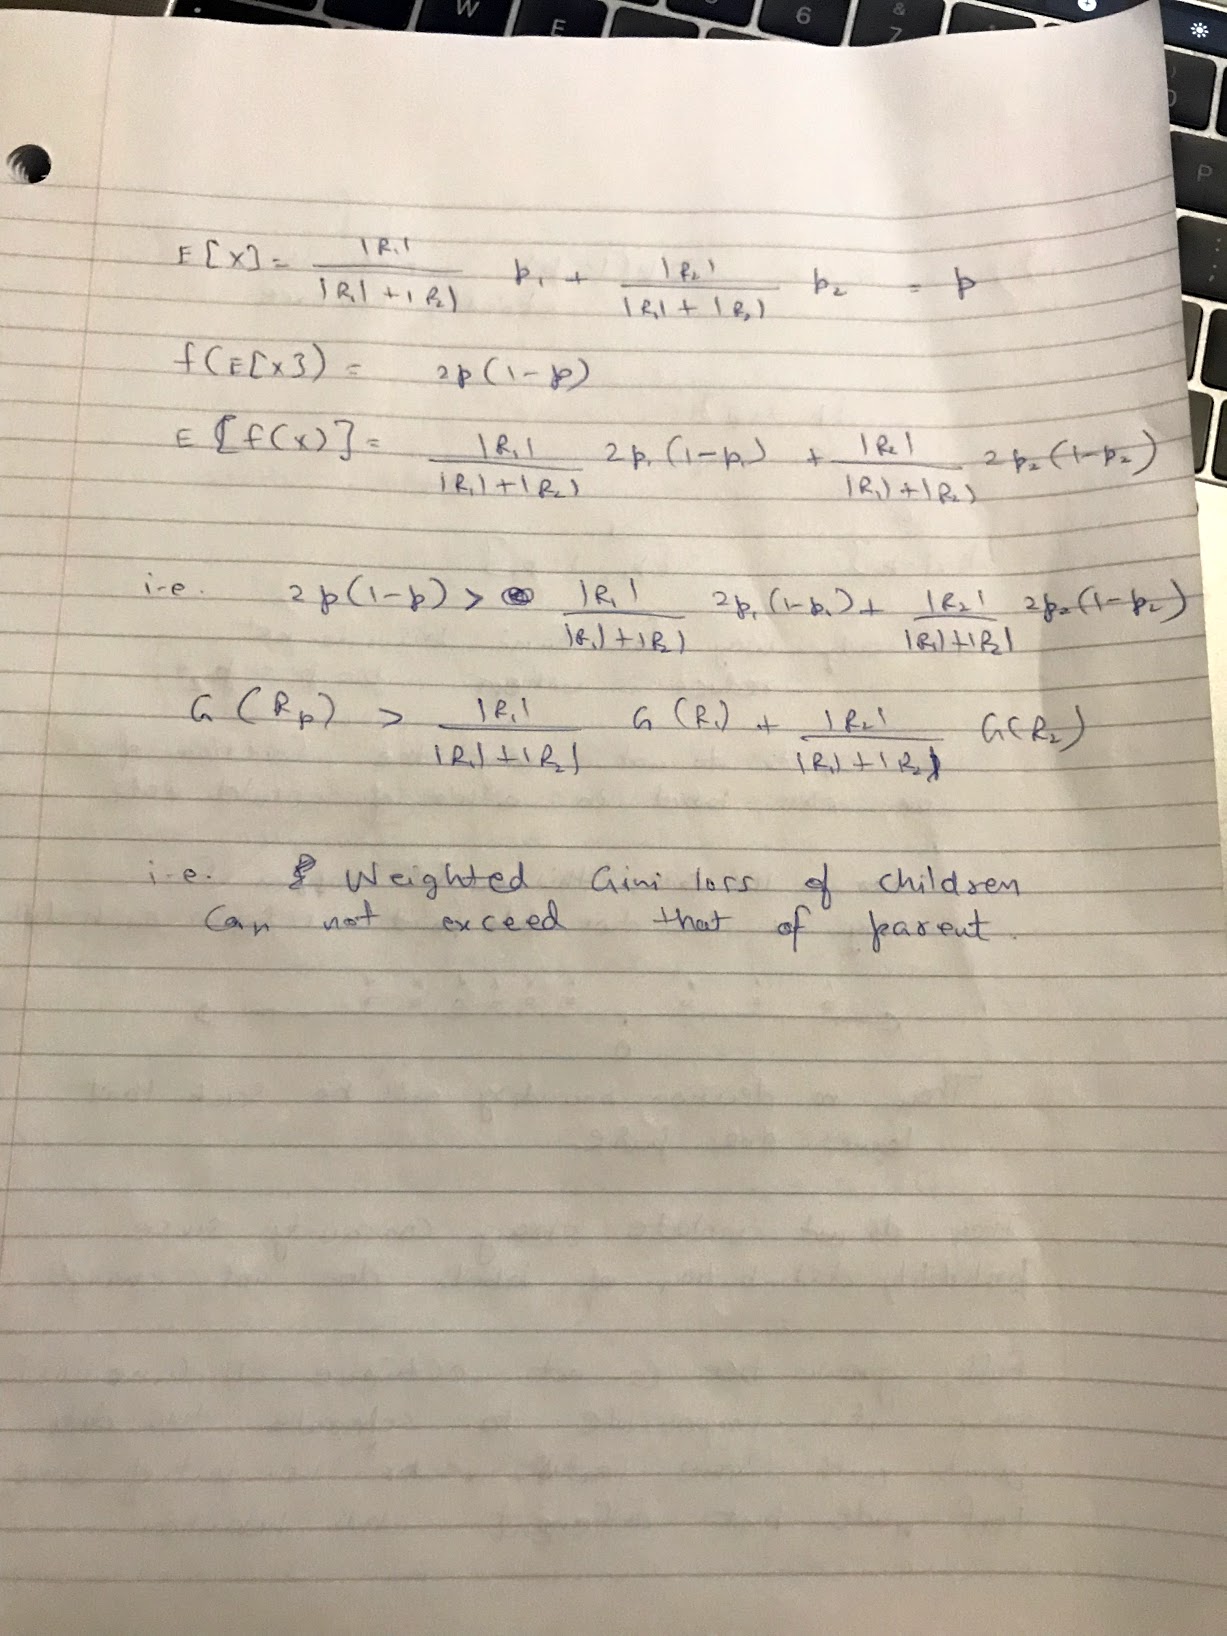 W E 6 & 7 P
E[X] = |R₁| / (|R₁| + |R₂|) p₁ + |R₂| / (|R₁| + |R₂|) p₂ = p
f(E[X]) = 2p(1-p)
E[f(x)] = |R₁| / (|R₁| + |R₂|) 2p₁(1-p₁) + |R₂| / (|R₁| + |R₂|) 2p₂(1-p₂)
i-e. 2p(1-p) > |R₁| / (|R₁| + |R₂|) 2p₁(1-p₁) + |R₂| / (|R₁| + |R₂|) 2p₂(1-p₂)
G(Rp) > |R₁| / (|R₁| + |R₂|) G(R₁) + |R₂| / (|R₁| + |R₂|) G(R₂)
i-e. Weighted Gini loss of children
Can not exceed that of parent.